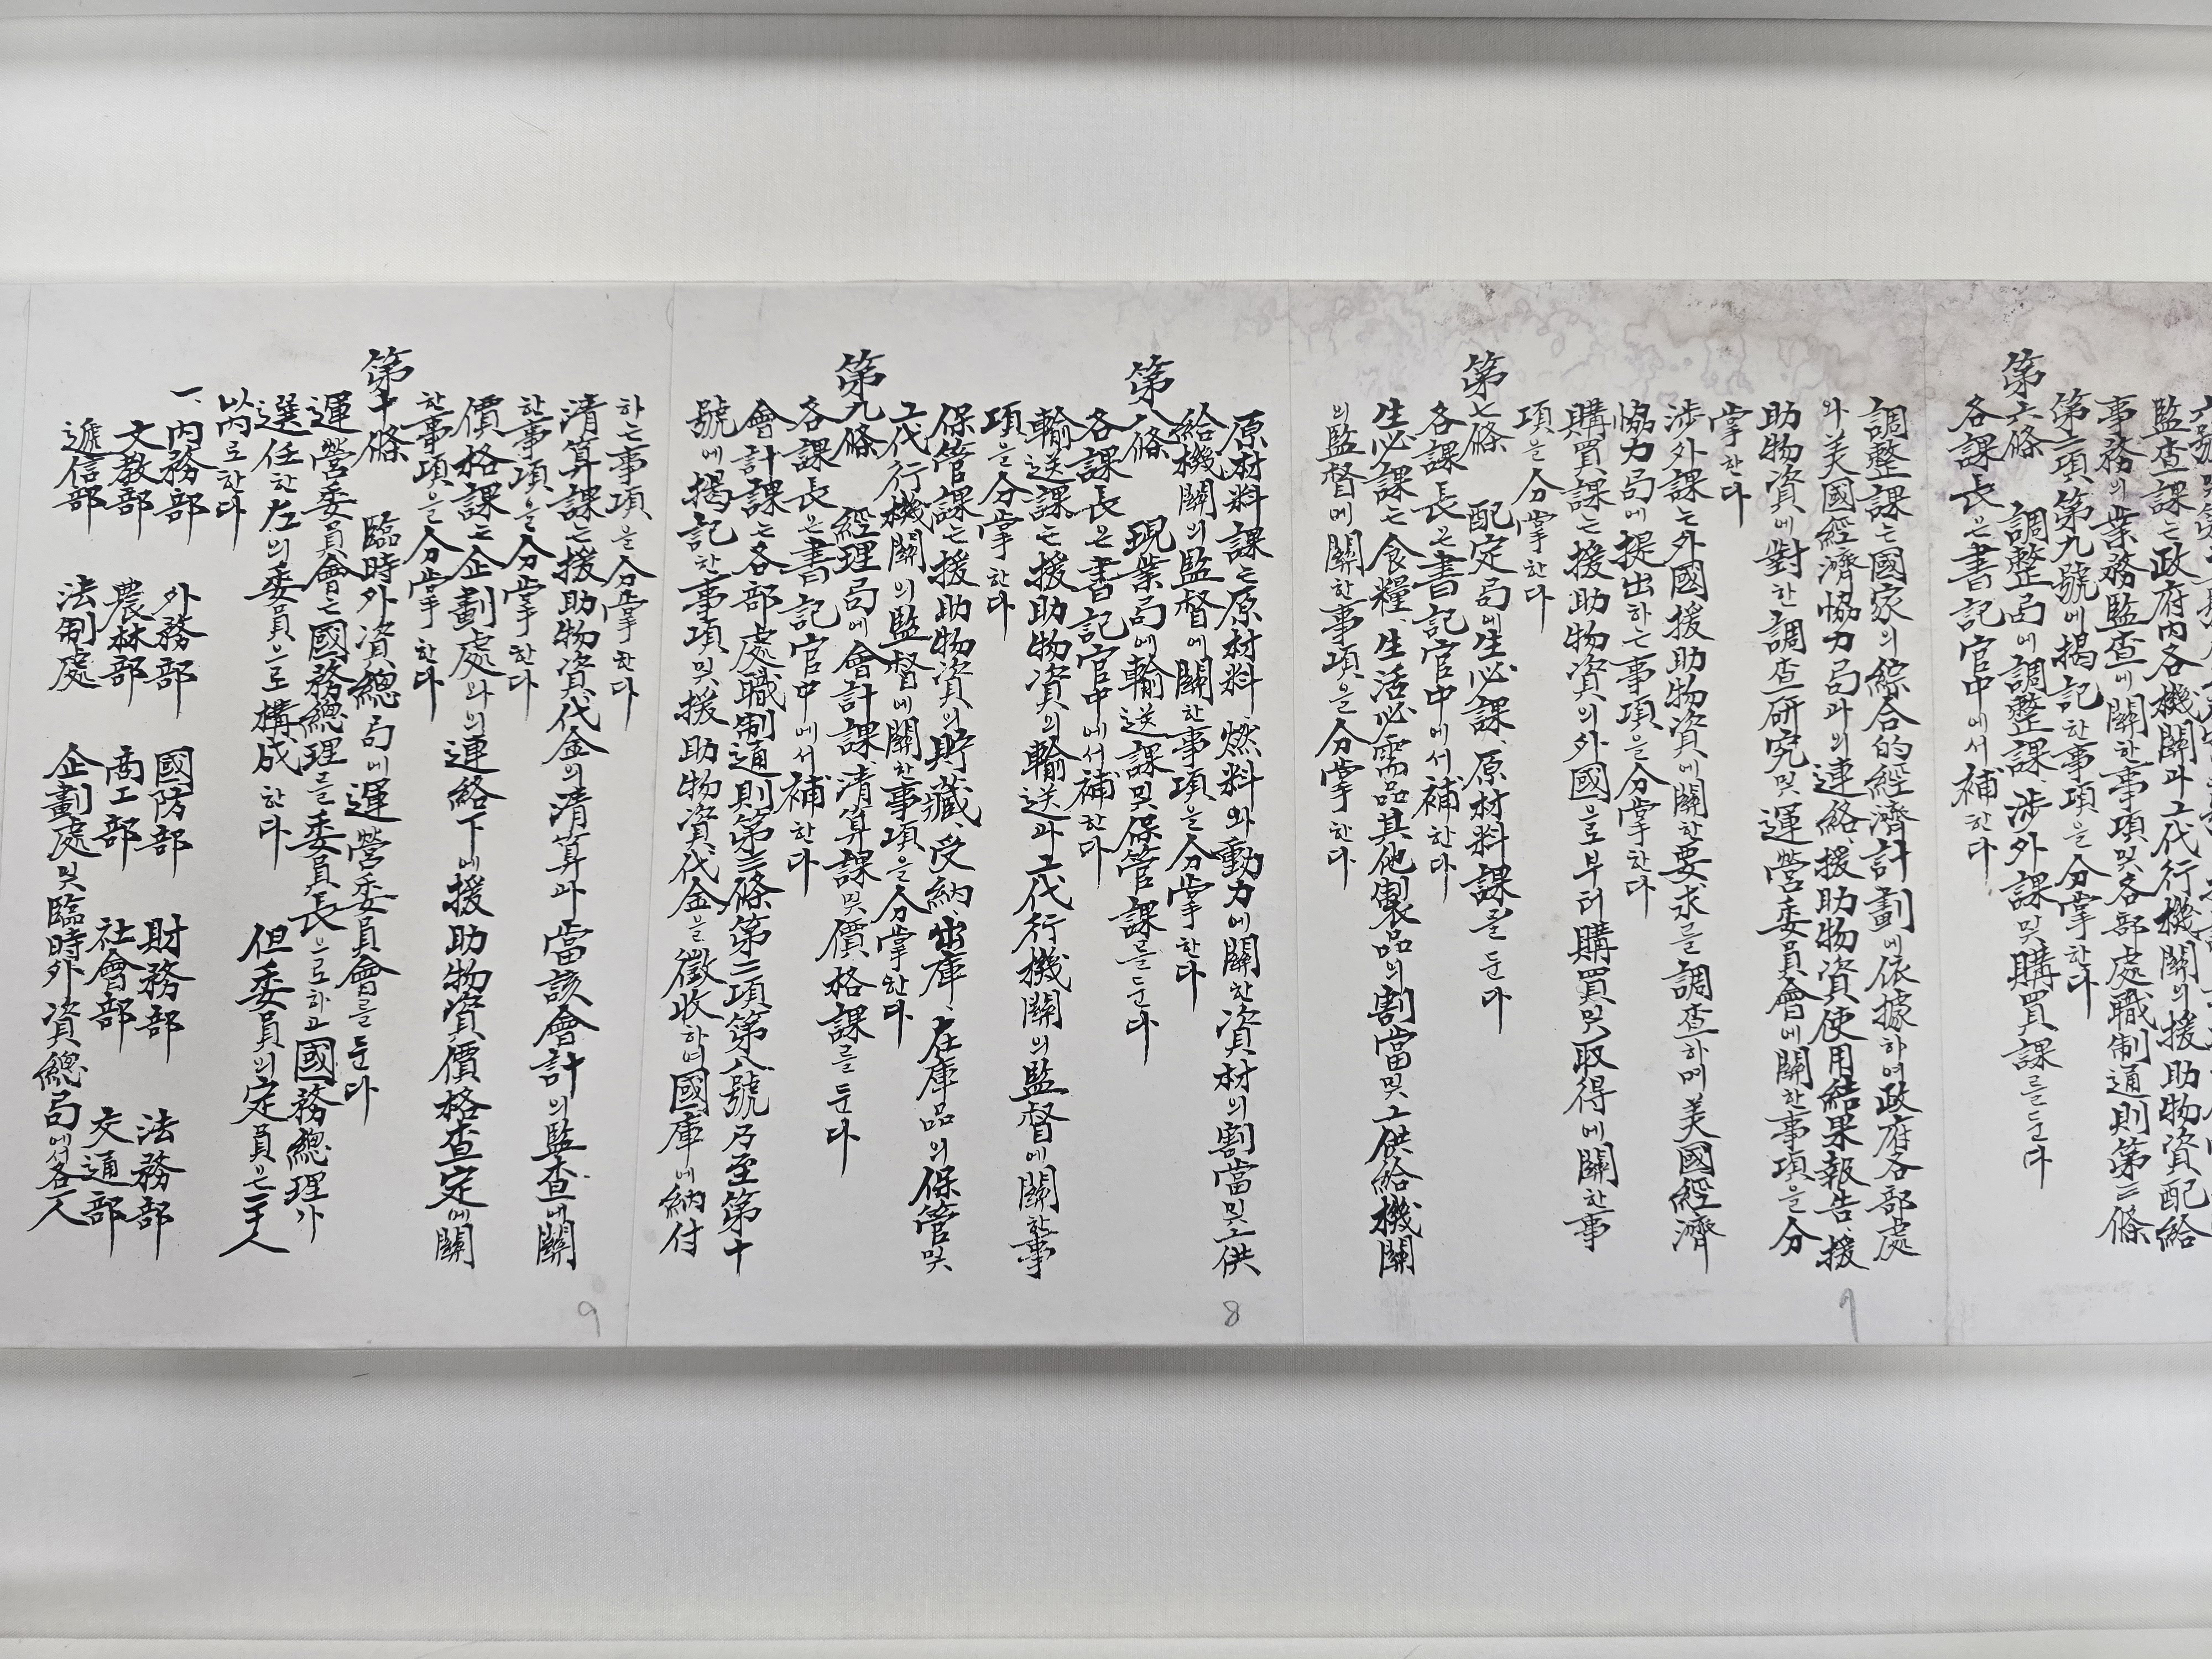 監査課는政府內各機關과그代行機關의援助物資配給
事務의業務監査에關한事項및各部處職制通則第三條
第二項第九號에揭記한事項을分掌한다
第六條 調整局에調整課、涉外課및購買課를둔다
各課長은書記官中에서補한다
調整課는國家의綜合的經濟計劃에依據하여政府各部處
와美國經濟協力局과의連絡、援助物資使用結果報告、援
助物資에對한調査硏究및運營委員會에關한事項을分
掌한다
涉外課는外國援助物資에關한要求를調査하며美國經濟
協力局에提出하는事項을分掌한다
購買課는援助物資의外國으로부터購買및取得에關한事
項을分掌한다
第七條 配定局에生必課、原材料課를둔다
各課長은書記官中에서補한다
生必課는食糧、生活必需品其他製品의割當및그供給機關
의監督에關한事項을分掌한다
原材料課는原材料、燃料와動力에關한資材의割當및그供
給機關의監督에關한事項을分掌한다
第八條 現業局에輸送課및保管課를둔다
各課長은書記官中에서補한다
輸送課는援助物資의輸送과그代行機關의監督에關한事
項을分掌한다
保管課는援助物資의貯藏、受納、出庫、在庫品의保管및
그代行機關의監督에關한事項을分掌한다
第九條 經理局에會計課、淸算課및價格課를둔다
各課長은書記官中에서補한다
會計課는各部處職制通則第三條第二項第八號乃至第十
號에揭記한事項및援助物資代金을徵收하여國庫에納付
하는事項을分掌한다
淸算課는援助物資代金의淸算과當該會計의監査에關
한事項을分掌한다
價格課는企劃處와의連絡下에援助物資價格査定에關
한事項을分掌한다
第十條 臨時外資總局에運營委員會를둔다
運營委員會는國務總理를委員長으로하고國務總理가
選任한左의委員으로構成한다 但委員의定員은二十人
以內로한다
一、內務部 外務部 國防部 財務部 法務部
文敎部 農林部 商工部 社會部 交通部
遞信部 法制處 企劃處및臨時外資總局에서各一人
9
8
7